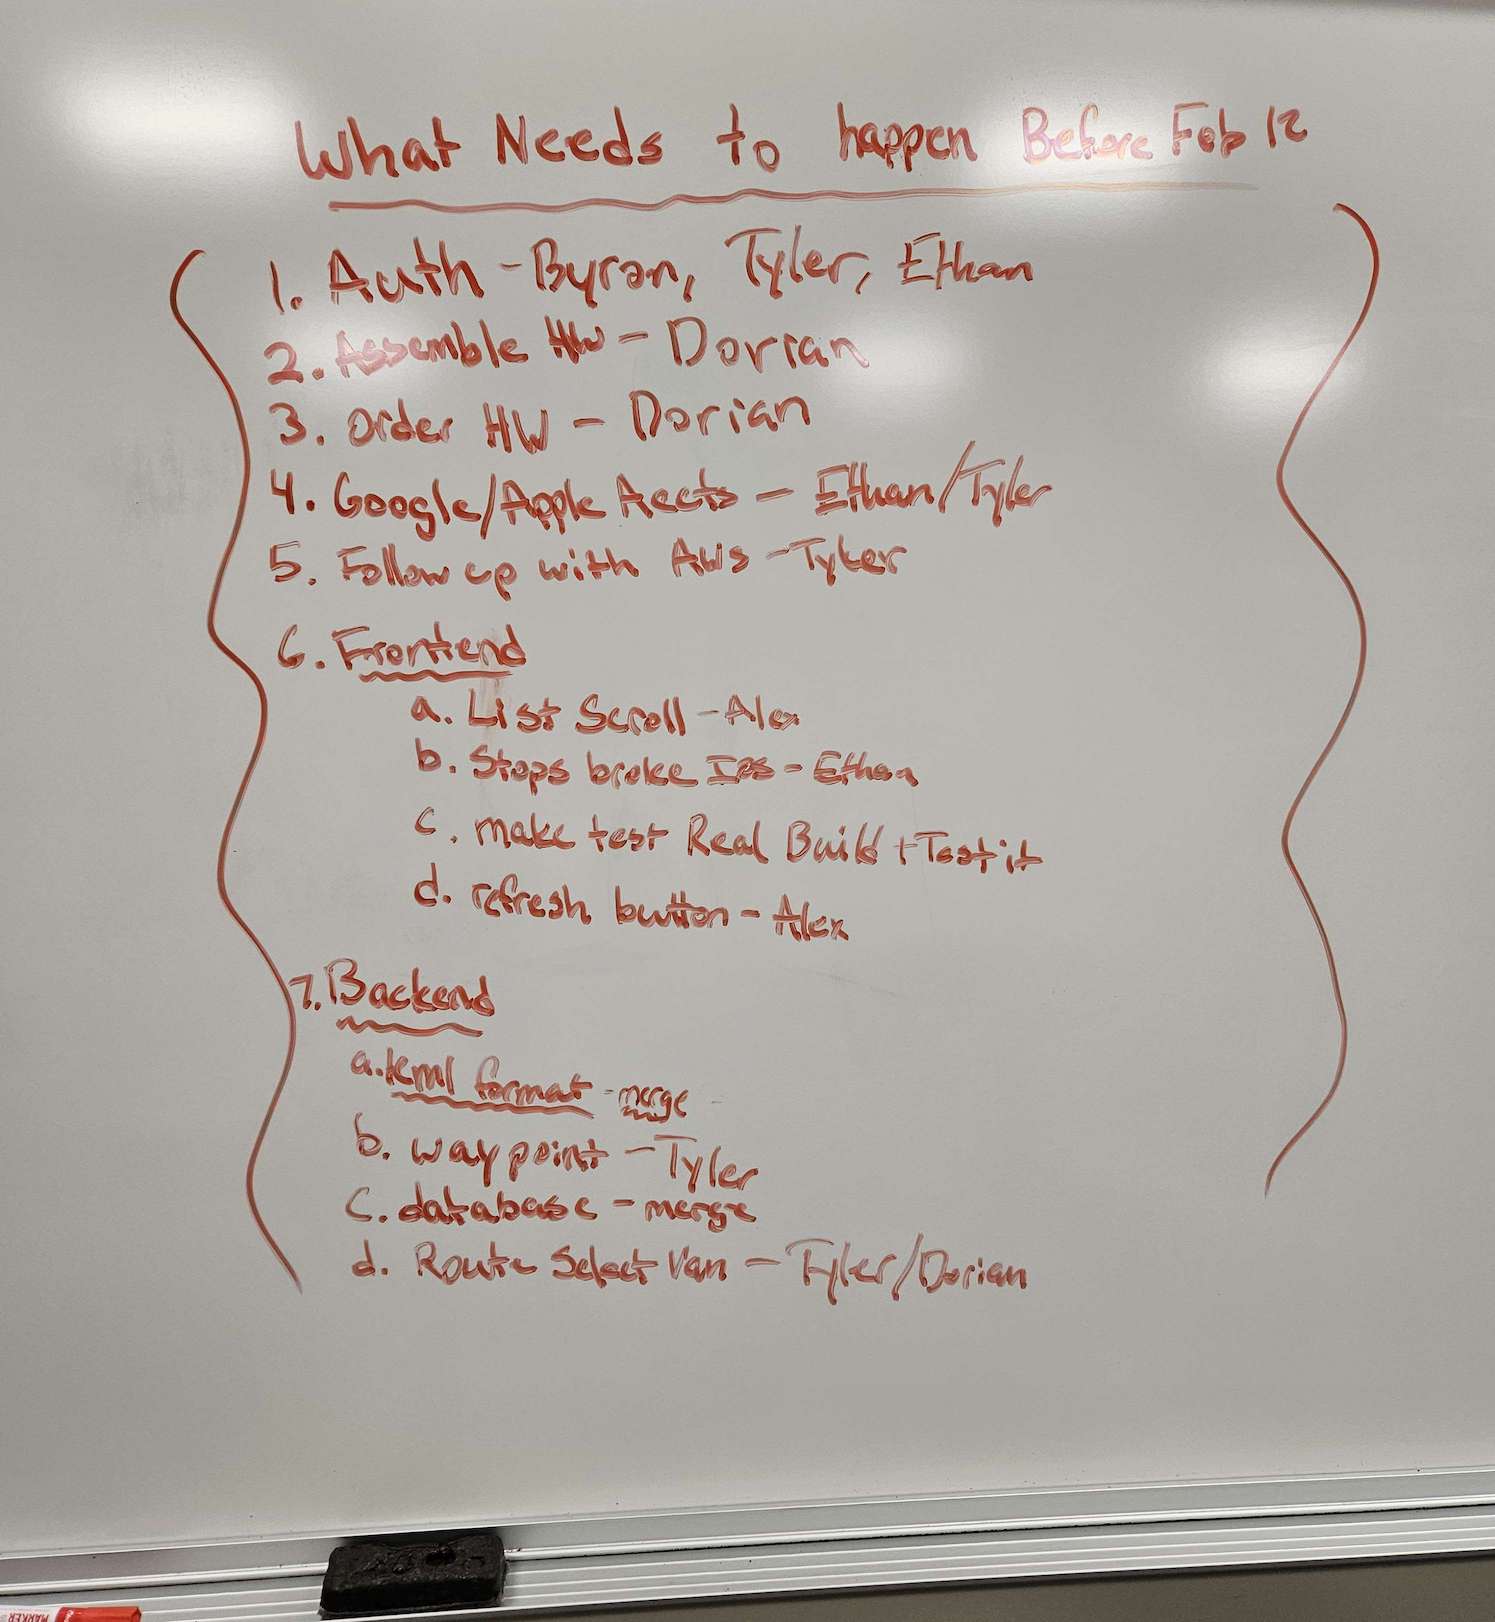 What Needs to happen Before Feb 12
1. Auth - Byron, Tyler, Ethan
2. Assemble HW - Dorian
3. Order HW - Dorian
4. Google/Apple Accts - Ethan/Tyler
5. Follow up with AWS - Tyler
6. Frontend
a. List Scroll - Alex
b. Stops broke - Ethan
c. make test Real Build + Test it
d. refresh button - Alex
7. Backend
a. kml format - merge
b. waypoint - Tyler
c. database - merge
d. Route Select Van - Tyler/Dorian
MARKER